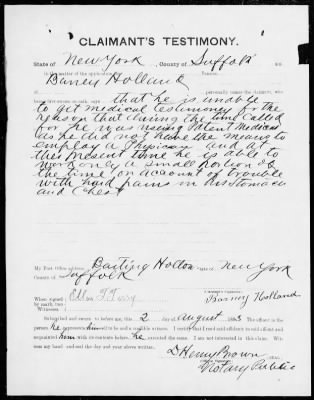 CLAIMANT'S TESTIMONY.
State of New York, County of Suffolk ss:
In the matter of the application
Barney Holland
personally came the claimant, who
being duly sworn on oath, says: that he is unable
to get medical testimony for the
reason that during the time called
for he was using Patent Medicines
as he did not have the means to
employ a Physician and at
this present time he is able to
work only a small portion of
the time on account of trouble
with hard pains in his stomach
and chest
My Post Office address Baiting Hollow State of New York
County of Suffolk
When signed by mark two Witnesses
Ellen T. Terry
Claimant's Signature.
Barney Holland
Subscribed and sworn to before me, this 2 day of August
The affiant is the
person he represents himself to be and a credible witness. I certify that I read said affidavit to said affiant and
acquainted him with its contents before he executed the same. I am not interested in this claim. Witness
my hand and seal the day and year above written.
D Henry Brown
Notary Public